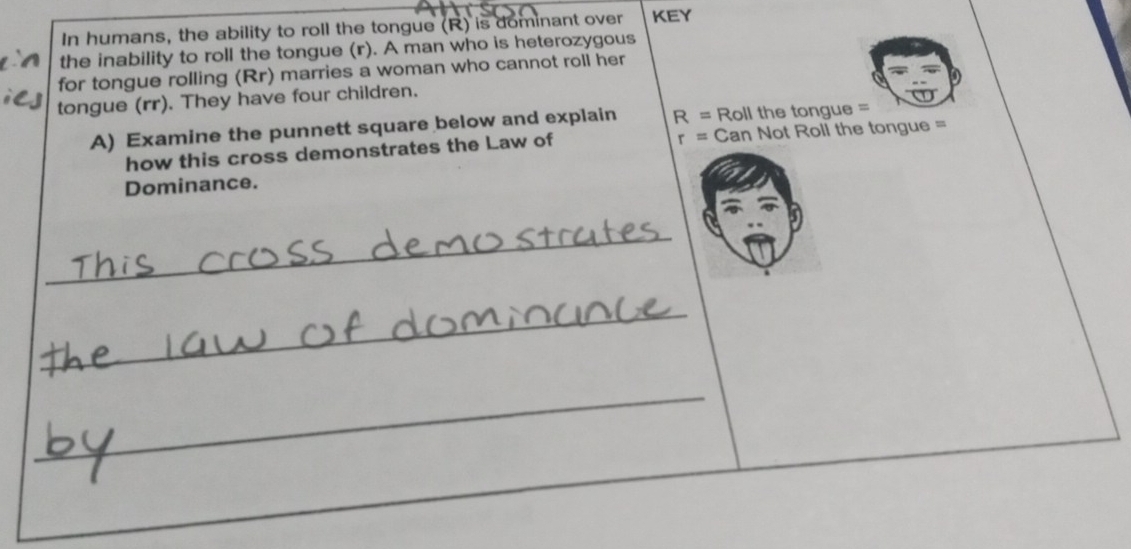 Allison
In humans, the ability to roll the tongue (R) is dominant over
the inability to roll the tongue (r). A man who is heterozygous
for tongue rolling (Rr) marries a woman who cannot roll her
tongue (rr). They have four children.
A) Examine the punnett square below and explain
how this cross demonstrates the Law of
Dominance.
This cross demostrates
the law of dominance
by
KEY
R = Roll the tongue =
r = Can Not Roll the tongue =